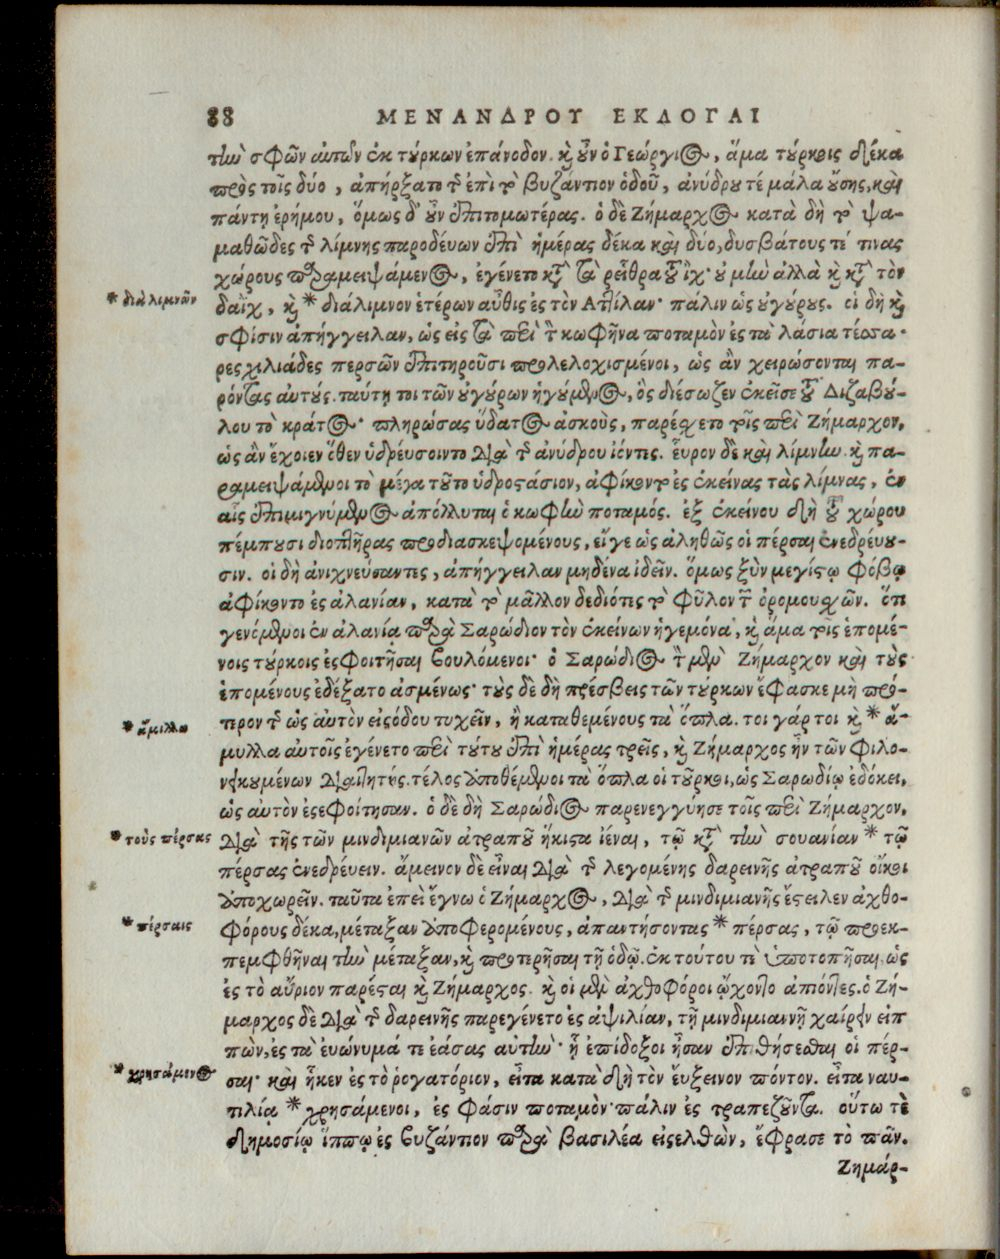 88 ΜΕΝΑΝΔΡΟΥ ΕΚΛΟΓΑΙ
τὴν σφῶν αὐτῶν ἐκ τύρκων ἐπάνοδον. καὶ οὖν ὁ Γεώργιος, ἅμα τύρκοις δέκα
πρὸς τοῖς δύο, ἀπήρξατο τῆς ἐπὶ τὸ βυζάντιον ὁδοῦ, ἀνύδρου τέ μάλα οὔσης, καὶ
πάντῃ ἐρήμου, ὅμως δ' οὖν ἐπιτομωτέρας. ὁ δὲ Ζήμαρχος κατὰ δὴ τὸ ψα-
μαθῶδες τῆς λίμνης παροδέυων ἐπὶ ἡμέρας δέκα καὶ δύο, δυσβάτους τέ τινας
χώρους παραμειψάμενος, ἐγένετο κατὰ τὰ ῥεῖθρα τοῦ ἴχ· οὐ μὴν ἀλλὰ καὶ κατὰ τὸν
* διὰ λιμνῶν
δαῒχ, καὶ * διάλιμνον ἑτέρων αὖθις ἐς τὸν Αττίλαν· πάλιν ὡς οὐγούρους. οἱ δὴ καὶ
σφίσιν ἀπήγγειλαν, ὡς εἰς τὰ περὶ τὸν κωφῆνα ποταμὸν ἐς τὰ λάσια τέσσα-
ρες χιλιάδες περσῶν ἐπιτηροῦσι προλελοχισμένοι, ὡς ἂν χειρώσονται πα-
ρόντας αὐτούς. ταύτῃ τοι τῶν οὐγούρων ἡγούμενος, ὃς διέσωζεν ἐκεῖσε τοῦ Διζαβού-
λου τὸ κράτος· πληρώσας ὕδατος ἀσκοὺς, παρέσχετο τοῖς περὶ Ζήμαρχον,
ὡς ἂν ἔχοιεν ὅθεν ὑδρέυσοιντο διὰ τῆς ἀνύδρου ἰόντες. εὗρον δὲ καὶ λίμνην. καὶ πα-
ραμειψάμενοι τὸ μέγα τοῦτο ὑδροστάσιον, ἀφίκοντο ἐς ἐκείνας τὰς λίμνας, ἐν
αἷς ἐπιμιγνύμενος ἀπόλλυται ὁ κωφὴν ποταμός. ἐξ ἐκείνου δὴ τοῦ χώρου
πέμπουσι διοπτῆρας προδιασκεψομένους, εἴ γε ὡς ἀληθῶς οἱ πέρσαι ἐνεδρέυου-
σιν. οἱ δὴ ἀνιχνεύσαντες, ἀπήγγειλαν μηδένα ἰδεῖν. ὅμως ξὺν μεγίστῳ φόβῳ
ἀφίκοντο ἐς ἀλανίαν, κατὰ τὸ μᾶλλον δεδιότες τὸ φῦλον τῶν ὀρομουσχῶν. ὅτι
γενόμενοι ἐν ἀλανίᾳ παρὰ Σαρώδιον τὸν ἐκείνων ἡγεμόνα, καὶ ἅμα τοῖς ἑπομέ-
νοις τύρκοις ἐσφοιτῆσαι βουλόμενοι· ὁ Σαρώδιος τὸν μὲν Ζήμαρχον καὶ τοὺς
ἑπομένους ἐδέξατο ἀσμένως· τοὺς δὲ δὴ πρέσβεις τῶν τύρκων ἔφασκε μὴ πρό-
* ἅμιλλα
τερον τῆς ὡς αὐτὸν εἰσόδου τυχεῖν, ἢ καταθεμένους τὰ ὅπλα. τοι γάρ τοι καὶ * ἄ-
μυλλα αὐτοῖς ἐγένετο περὶ τούτου ἐπὶ ἡμέρας τρεῖς, καὶ Ζήμαρχος ἦν τῶν φιλο-
νεικουμένων διαιτητής. τέλος ὑποθέμενοι τὰ ὅπλα οἱ τοῦρκοι, ὡς Σαρωδίῳ ἐδόκει,
ὡς αὐτὸν ἐσεφοίτησαν. ὁ δὲ δὴ Σαρώδιος παρενεγγύησε τοῖς περὶ Ζήμαρχον,
* τοὺς πέρσας
διὰ τῆς τῶν μινδιμιανῶν ἀτραποῦ ἥκιστα ἰέναι, τῷ κατὰ τὴν σουανίαν * τῷ
πέρσας ἐνεδρέυειν. ἄμεινον δὲ εἶναι διὰ τῆς λεγομένης δαρεινῆς ἀτραποῦ οἴκοι
ὑποχωρεῖν. ταῦτα ἐπεὶ ἔγνω ὁ Ζήμαρχος, διὰ τῆς μινδιμιανῆς ἔστειλεν ἀχθο-
* πέρσαις
φόρους δέκα, μέταξαν ὑποφερομένους, ἀπαντήσοντας * πέρσας, τῷ προεκ-
πεμφθῆναι τὴν μέταξαν, καὶ προτερῆσαι τῇ ὁδῷ. ἐκ τούτου τὲ ὑποτοπῆσαι, ὡς
ἐς τὸ αὔριον παρέσται καὶ Ζήμαρχος. καὶ οἱ μὲν ἀχθοφόροι ᾤχοντο ἀπιόντες. ὁ Ζή-
μαρχος δὲ διὰ τῆς δαρεινῆς παρεγένετο ἐς ἀψιλίαν, τῇ μινδιμιαννῇ χαίρειν εἰπ
πὼν, ἐς τὰ ἐυώνυμά τε ἐάσας αὐτὴν· ᾗ ἐπίδοξοι ἦσαν ἐπιθήσεσθαι οἱ πέρ-
* χρησάμενος
σαι· καὶ ἧκεν ἐς τὸ ῥογατόριον, εἶτα κατὰ δὴ τὸν ἔυξεινον πόντον. εἶτα ναυ-
τιλίᾳ * χρησάμενοι, ἐς φάσιν ποταμὸν· πάλιν ἐς τραπεζοῦντα. οὕτω τὲ
δημοσίῳ ἵππῳ ἐς βυζάντιον παρὰ βασιλέα εἰσελθὼν, ἔφρασε τὸ πᾶν.
Ζημάρ-